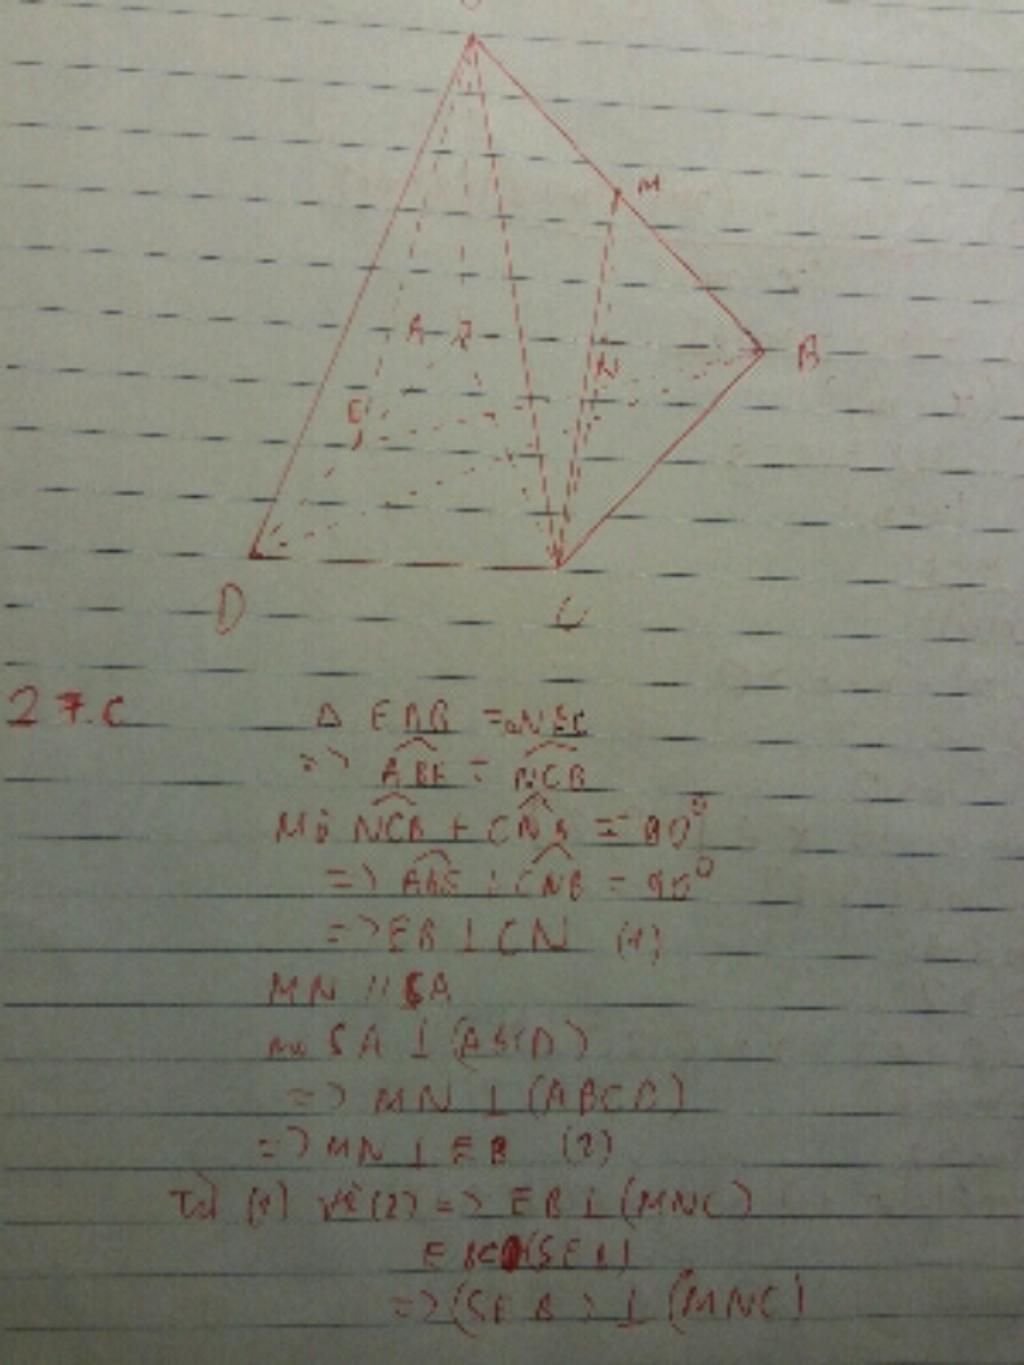 M
A
B
N
E
D
C
27.C
Δ EAB = ΔNBC
=> ABE = NCB
Mà NCB + CNB = 90°
=> ABE + CNB = 90°
=> EB ⊥ CN (1)
MN // SA
mà SA ⊥ (ABCD)
=> MN ⊥ (ABCD)
=> MN ⊥ EB (2)
Từ (1) và (2) => EB ⊥ (MNC)
EB ⊂ (SEB)
=> (SEB) ⊥ (MNC)